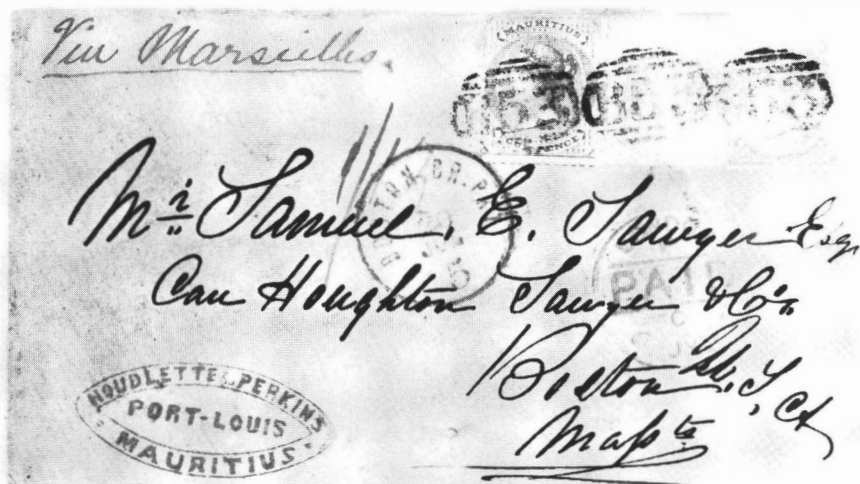 Via Marseilles.
(MAURITIUS)
PENCE
B53 B53 B53
BOSTON BR. PKT
PAID
Mr Samuel. E. Sawyer Esqr
Care Houghton Sawyer & Co.
Boston U. S. A
Massts
HOUDLETTE & PERKINS
PORT-LOUIS
MAURITIUS